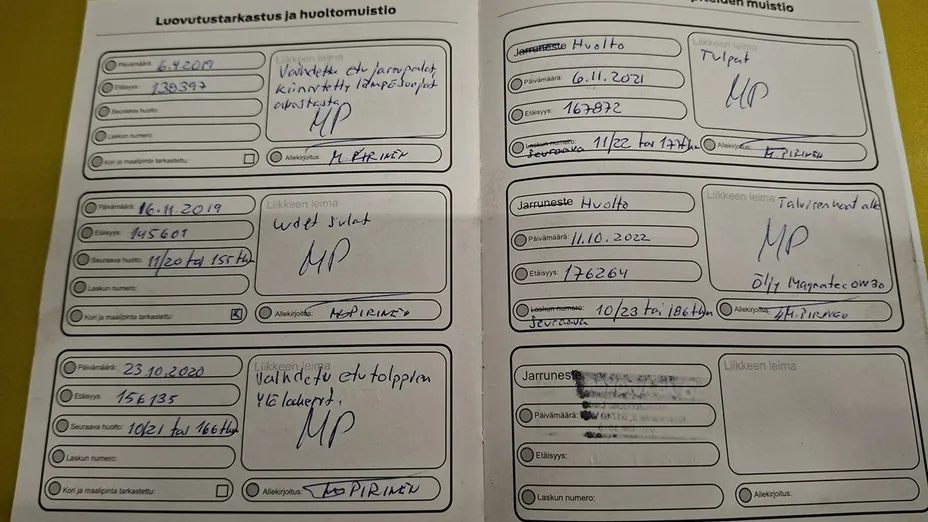 Luovutustarkastus ja huoltomuistio
Päivämäärä: 6.4.2019
Etäisyys: 139397
Seuraava huolto:
Laskun numero:
Kori ja maalipinta tarkastettu:
Vaihdettu etu jarrupalat,
kiinnitetty lämpösuojat
MP
Allekirjoitus: M.PIRINEN
Päivämäärä: 16.11.2019
Etäisyys: 145601
Seuraava huolto: 11/20 tai 155tkm
Laskun numero:
Kori ja maalipinta tarkastettu: X
Liikkeen leima
uudet sulat
MP
Allekirjoitus: PIRINEN
Päivämäärä: 23.10.2020
Etäisyys: 156135
Seuraava huolto: 10/21 tai 166tkm
Laskun numero:
Kori ja maalipinta tarkastettu:
Liikkeen leima
Vaihdettu etu tolppien
MP
Allekirjoitus: PIRINEN
muistio
Jarruneste Huolto
Päivämäärä: 6.11.2021
Etäisyys: 167872
Laskun numero: 11/22 tai 177tkm
Seuraava
Liikkeen leima
Tulpat
MP
Allekirjoitus: M.PIRINEN
Jarruneste Huolto
Päivämäärä: 11.10.2022
Etäisyys: 176264
Laskun numero: 10/23 tai 186tkm
Seuraava
Liikkeen leima
Talvirenkaat alle
MP
Öljy Magnatec 0W30
Allekirjoitus: M.PIRINEN
Jarruneste
Päivämäärä:
Etäisyys:
Laskun numero:
Liikkeen leima
Allekirjoitus: